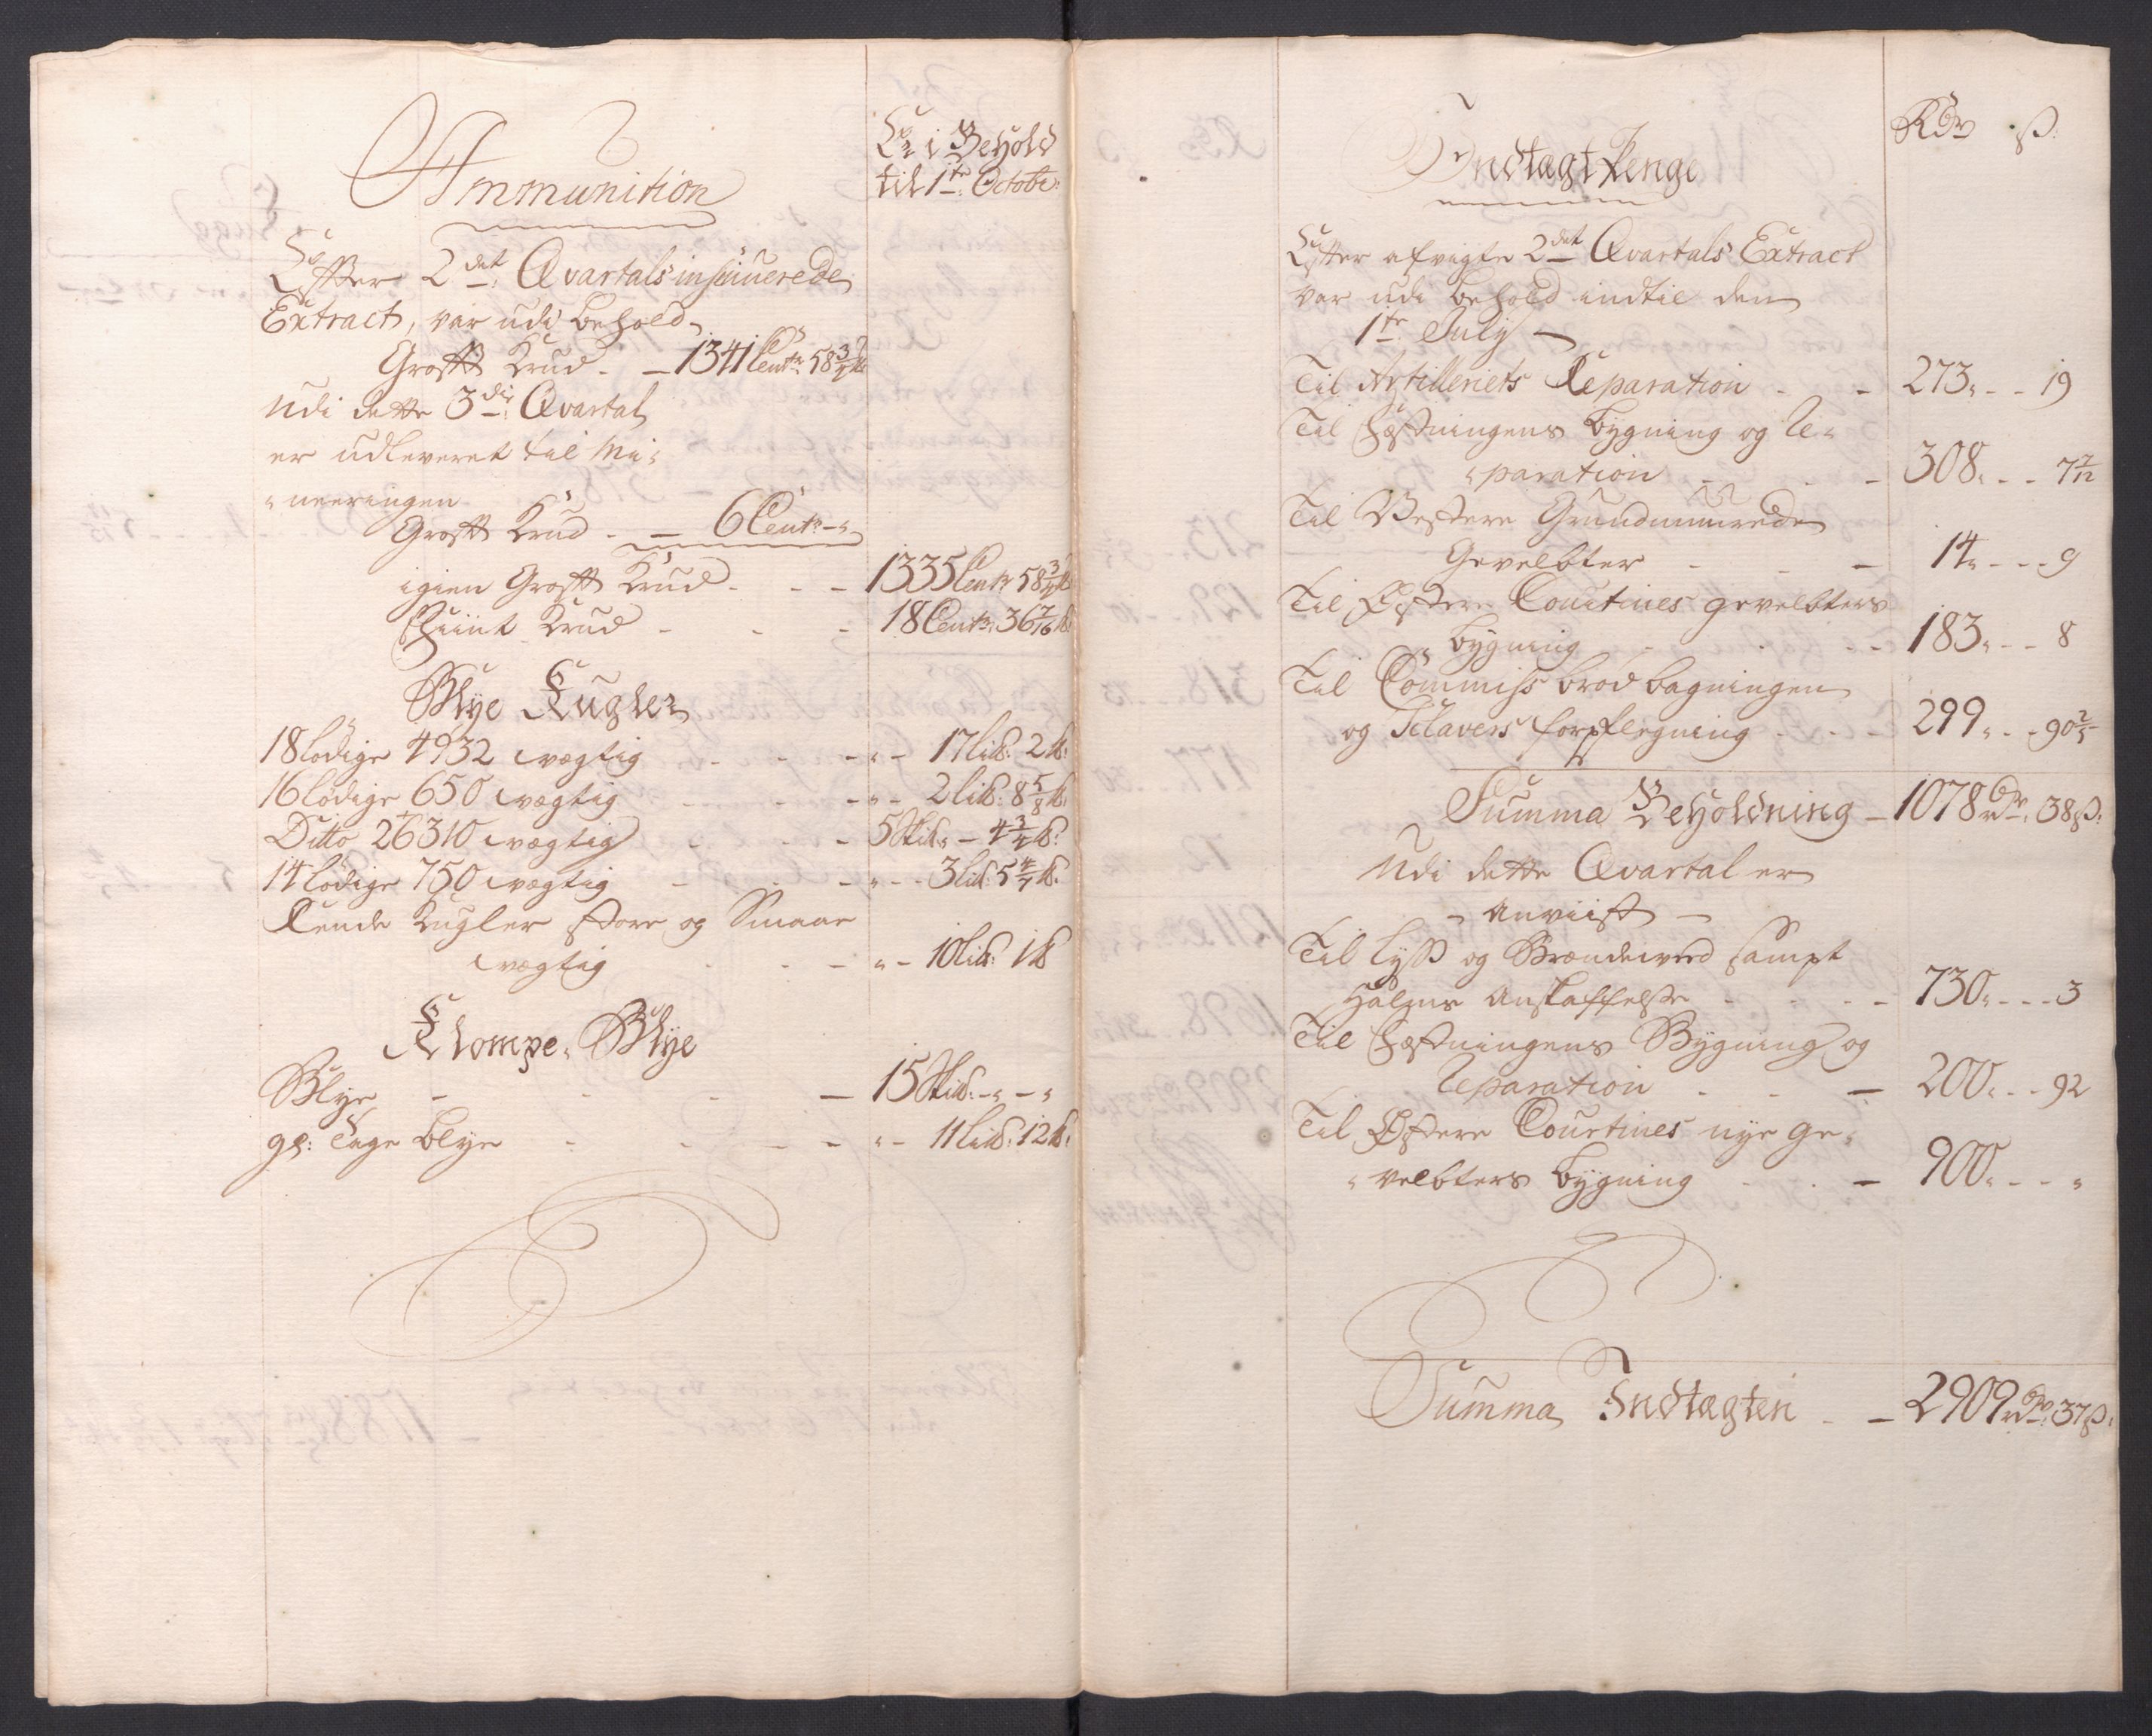 Ammunition
Er i Behold
til 1te Octobr:
Efter 2det Qvartals insinuerede
Extract, var udi behold
Grofft Krud - - 1341 Centr 58 3/4 ℔
Udi dette 3die Qvartal
er udleveret til Mi-
-neeringen
Grofft Krud - - 6 Centr - "
igien Grofft Krud - - - 1335 Centr 58 3/4 ℔
Fiint Krud - - - 18 Centr 36 7/16 ℔
Blye Kugler
18 lodige 4932 wegtig - - - " - 17 li℔: 2 ℔:
16 lodige 650 wegtig - - - " - 2 li℔: 8 5/8 ℔:
Ditto 26310 wegtig - - - 5 Ski℔: - 4 3/4 ℔:
14 lodige 750 wegtig - - - " - - 3 li℔: 5 4/7 ℔:
Rende Kugler store og Smaae
wegtig - - - " - 10 li℔: 1 ℔
Klompe Blye
Blye - - - - 15 Ski℔: - " - "
gl: Tage blye - - - - " - 11 li℔: 12 ℔:
Indtagt Penge
Rdr ß:
Efter afvigte 2det Qvartals Extract
var udi behold indtil den
1te July -
Til Artilleriets Reparation - - 273 " - - 19
Til Fæstningens bygning og Re-
-paration - - - 308 " - - 7 7/12
Til Vestere Grundmurede
Gevelbter - - - 14 " - - - 9
Til Østere Courtines gevelbters
bygning - - - 183 " - - 8
Til Commiss brød bagningen
og Slavers forpflegning - - - 299 " - - 90 2/5
Summa Beholdning - 1078 rdr: 38 ß:
Udi dette Qvartal er
- Anviist -
Til Lyss og Brændeved sampt
Halmes Anskaffelse - - - - 730 " - - - 3
Til Fæstningens Bygning og
Reparation - - - 200 " - - 92
Til Østere Courtines nye ge-
-velbters bygning - - - 900 " - - - "
Summa Indtægten - - 2909 rdr: 37 ß: